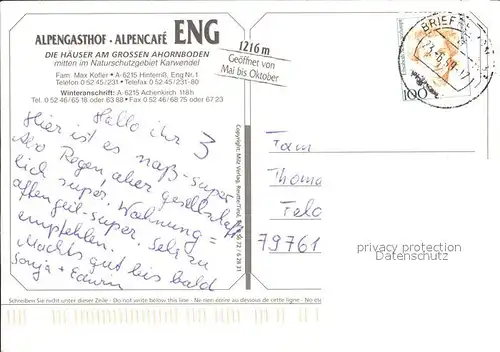 ALPENGASTHOF · ALPENCAFÉ ENG
DIE HÄUSER AM GROSSEN AHORNBODEN
mitten im Naturschutzgebiet Karwendel
Fam. Max Kofler · A-6215 Hinterriß, Eng Nr. 1
Telefon 0 52 45 / 231 · Telefax 0 52 45 / 231-80
Winteranschrift: A-6215 Achenkirch 118h
Tel. 0 52 46/65 18 oder 63 88 · Fax 0 52 46/68 75 oder 67 23
1216 m
Geöffnet von
Mai bis Oktober
Hallo ihr 3
Hier ist es naß-super
Also Regen aber gesellschaft
lich super. Wohnung =
affengeil-super. Sehr zu
empfehlen.
Machts gut bis bald
Sonja + Edwin
Copyright: Milz Verlag, Reutte/Tirol
BRIEF
100
Fam
Thoma
Felo
79761
privacy protection
Datenschutz
Schreiben Sie nicht unter dieser Zeile - Do not write below this line - Ne rien écrire au dessous de cette ligne - No es